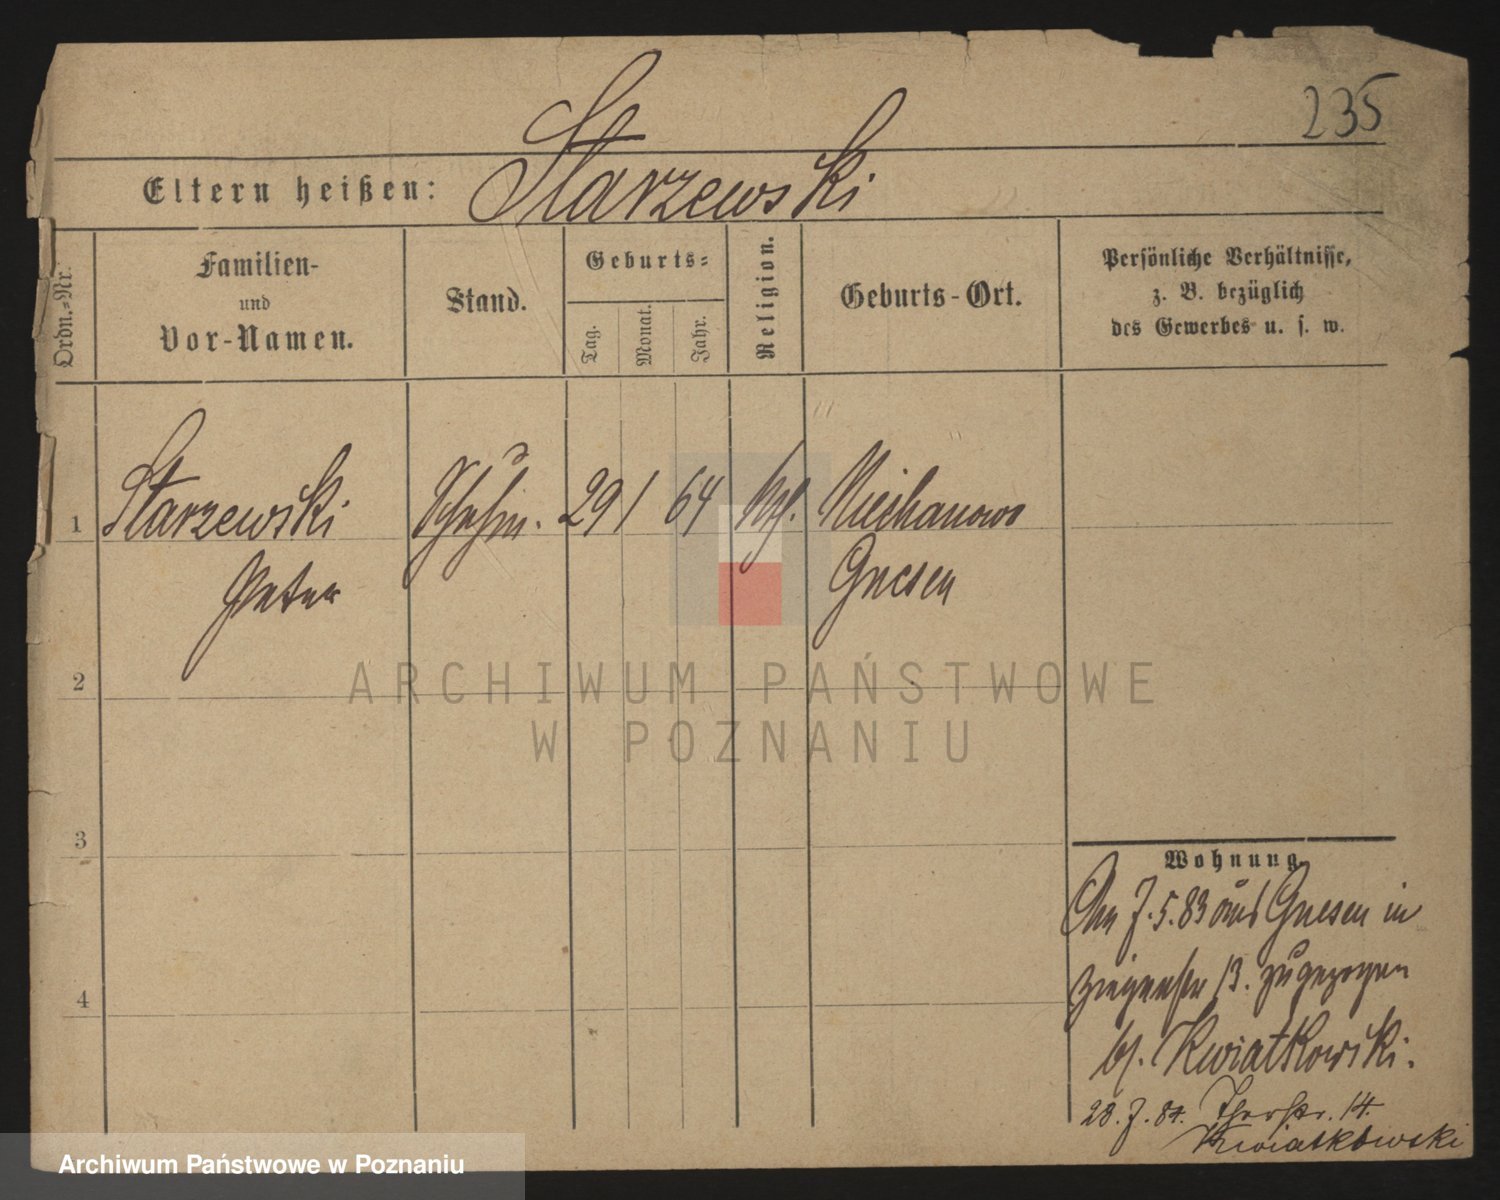 235
Eltern heißen: Starzewski
Ordn.-Nr.
Familien-
und
Vor-Namen.
Stand.
Geburts-
Tag.
Monat.
Jahr.
Religion.
Geburts-Ort.
Persönliche Verhältnisse,
z. B. bezüglich
des Gewerbes u. s. w.
1 Starzewski 29 1 64 kth. Niechanowo
Peter Gnesen
2
ARCHIWUM PAŃSTWOWE
W POZNANIU
3
4
Wohnung
Am 7.5.83 aus Gnesen in
Ziegenstr 13. zugezogen
bei Kwiatkowski.
28.7.84. Thorstr. 14.
Kwiatkowski
Archiwum Państwowe w Poznaniu